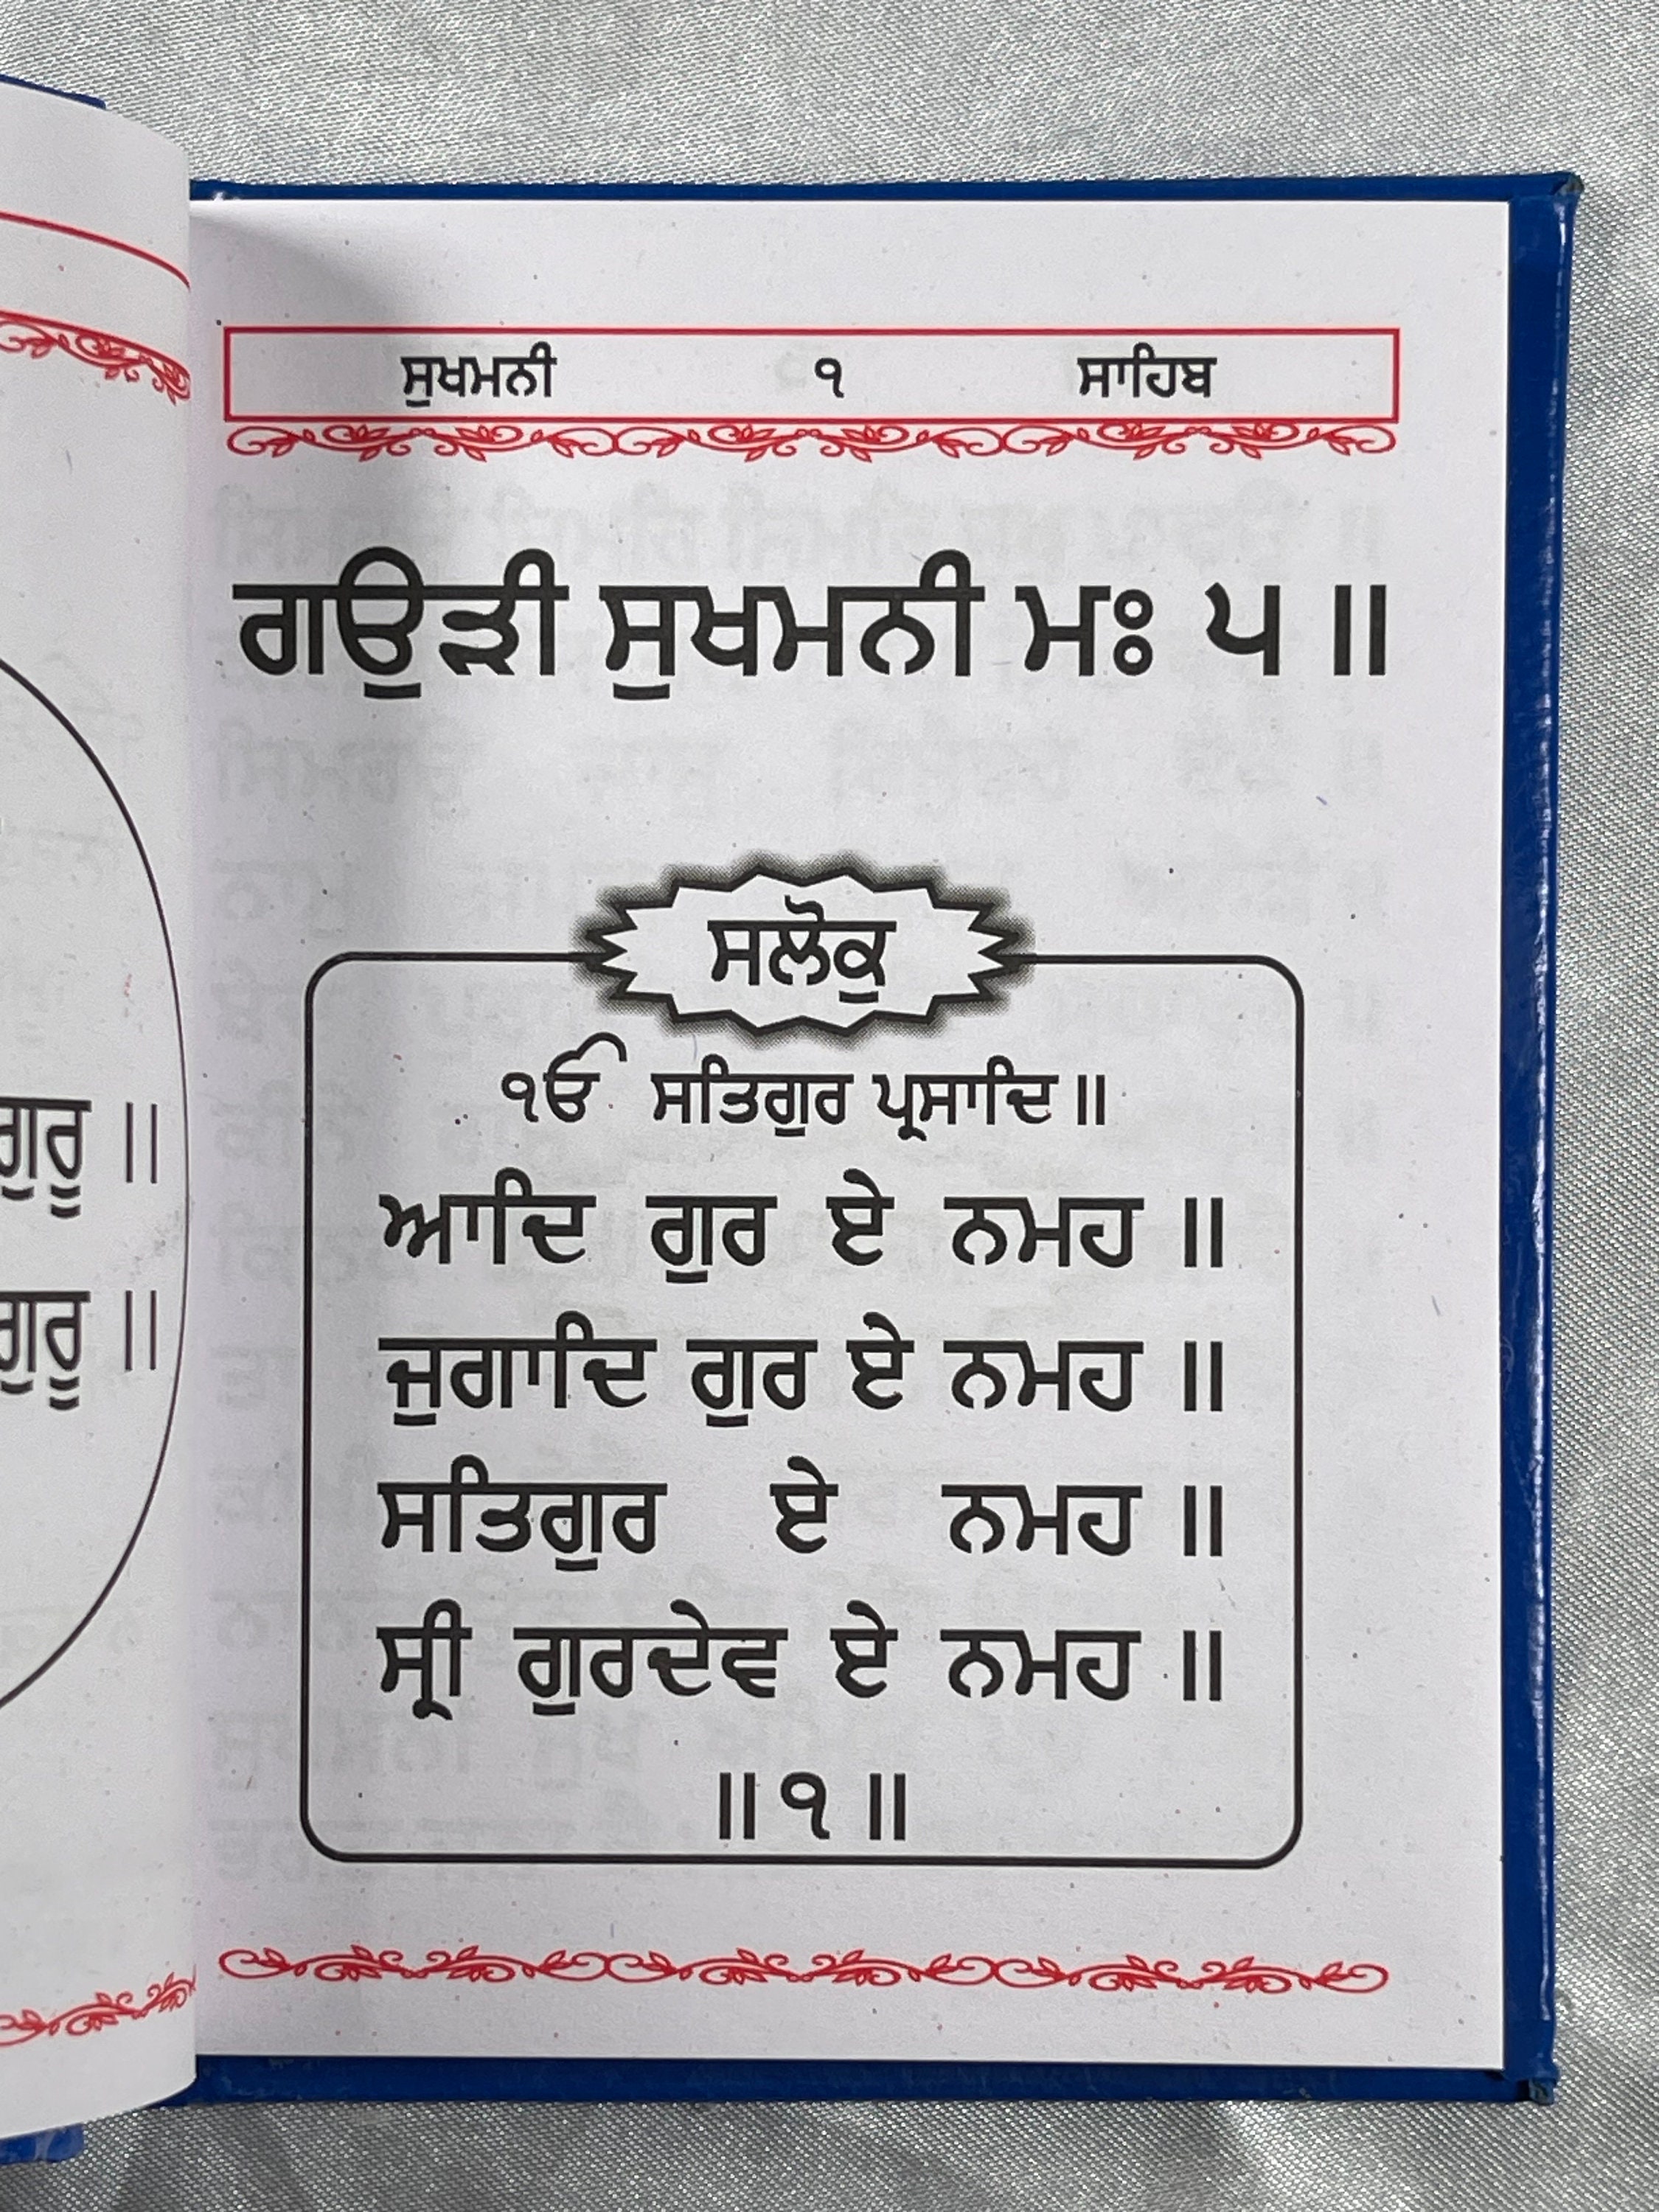 ਸੁਖਮਨੀ ੧ ਸਾਹਿਬ
ਗਉੜੀ ਸੁਖਮਨੀ ਮਃ ੫ ॥
ਸਲੋਕੁ
ੴ ਸਤਿਗੁਰ ਪ੍ਰਸਾਦਿ॥
ਆਦਿ ਗੁਰ ਏ ਨਮਹ ॥
ਜੁਗਾਦਿ ਗੁਰ ਏ ਨਮਹ ॥
ਸਤਿਗੁਰ ਏ ਨਮਹ ॥
ਸ੍ਰੀ ਗੁਰਦੇਵ ਏ ਨਮਹ ॥
॥੧॥